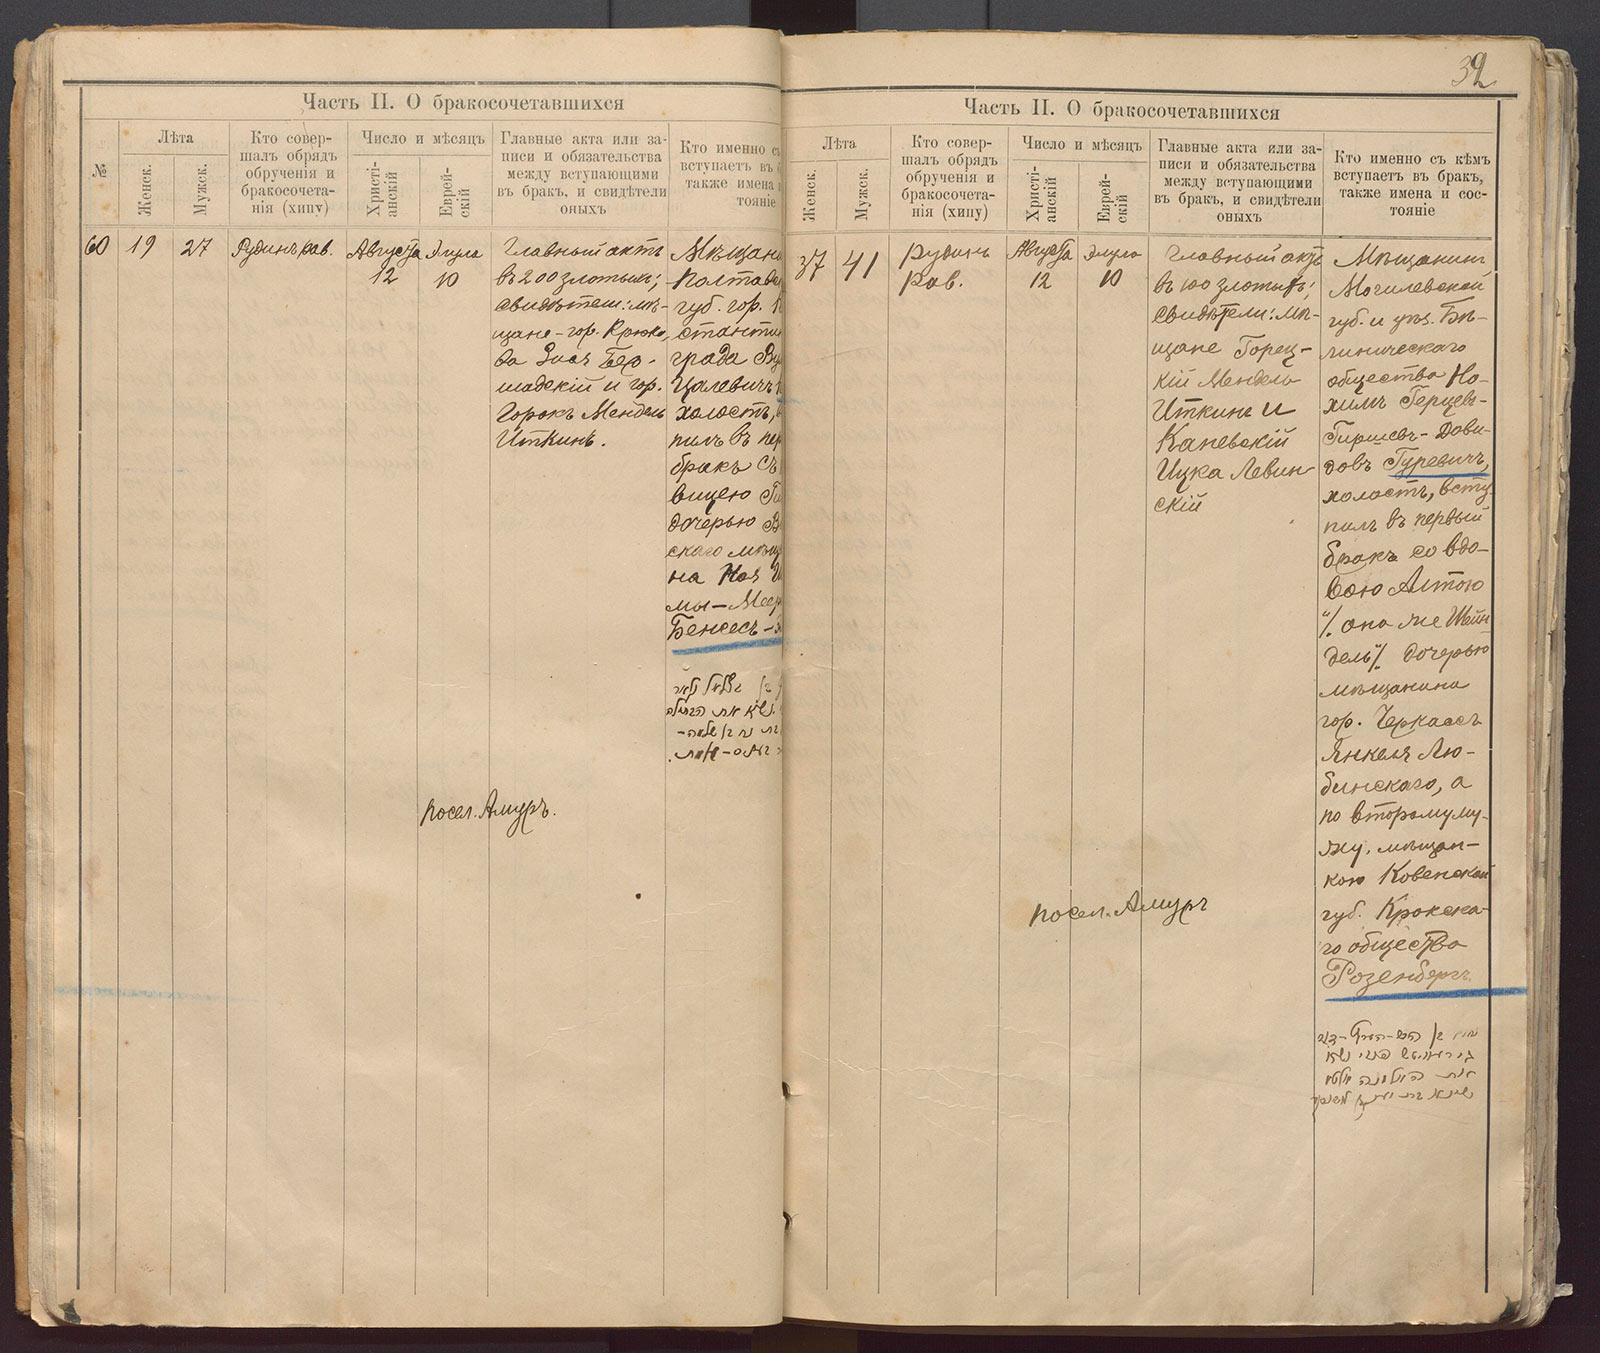 Часть II. О бракосочетавшихся
№
Лѣта
Женск.
Мужск.
Кто совер-
шалъ обрядъ
обрученія и
бракосочета-
нія (хипу)
Число и мѣсяцъ
Христі-
анскій
Еврей-
скій
Главные акта или за-
писи и обязательства
между вступающими
въ бракъ, и свидѣтели
оныхъ
Кто именно
вступаетъ въ
также имена
тояніе
60
19
27
Рудинъ рав.
Августа
12
Элула
10
Главный актъ
въ 200 злотыхъ;
свидѣтели: мѣ-
щане - гор. Крюко
ва Зися Бер-
шадскій и гор.
Горокъ Мендель
Иткинъ.
Мѣщан
Полтав
губ. гор.
стантин
града
Цалевичъ
холостъ,
пилъ въ пер
бракъ съ
вицею
дочерью
скаго мѣщ
на Ноя
мы-Меер
Бенесъ-
посел. Амуръ.
32
Часть II. О бракосочетавшихся
Лѣта
Женск.
Мужск.
Кто совер-
шалъ обрядъ
обрученія и
бракосочета-
нія (хипу)
Число и мѣсяцъ
Христі-
анскій
Еврей-
скій
Главные акта или за-
писи и обязательства
между вступающими
въ бракъ, и свидѣтели
оныхъ
Кто именно съ кѣмъ
вступаетъ въ бракъ,
также имена и сос-
тояніе
37
41
Рудинъ
Рав.
Августа
12
Элула
10
Главный актъ
въ 100 злотыхъ;
свидѣтели: мѣ-
щане Горец-
кій Мендель
Иткинъ и
Каневскій
Ицка Левин-
скій
Мѣщанинъ
Могилевской
губ. и уѣз. Бѣ-
линическаго
общества Но-
химъ Герцевъ-
Гиршевъ-Дови-
довъ Гуревичъ,
холостъ, всту-
пилъ въ первый
бракъ со вдо-
вою Алтою
"/. она же Шейн
дель"/. дочерью
мѣщанина
гор. Черкассъ
Янкеля Лю-
бинскаго, а
по второму му-
жу, мѣщан-
кою Ковенской
губ. Крокска-
го общества
Розенбергъ.
посел. Амуръ